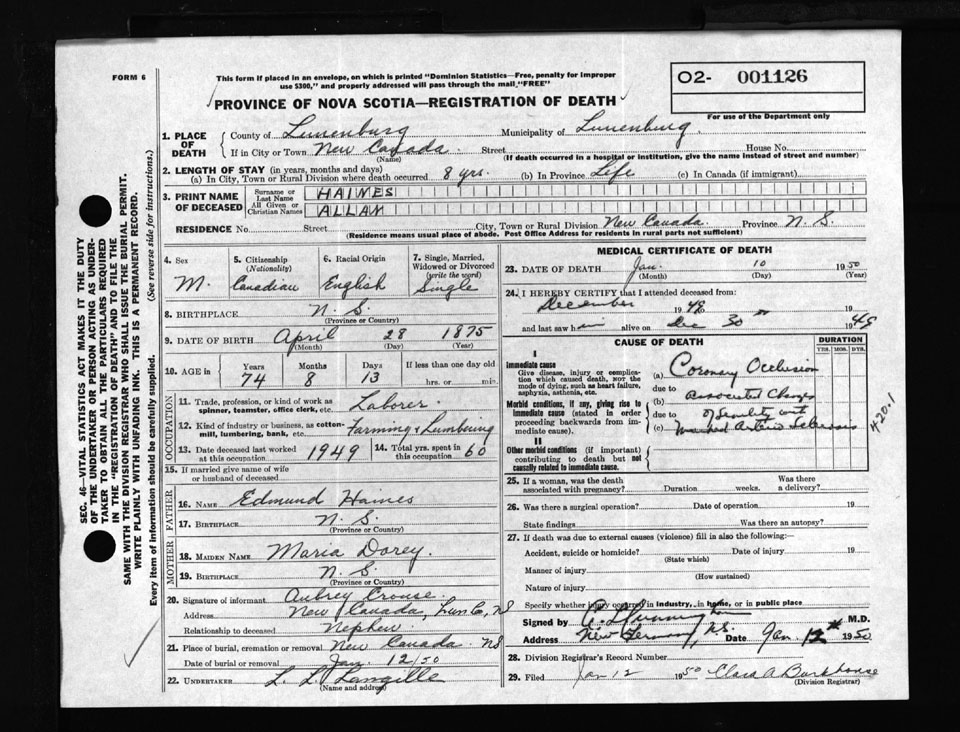 FORM 6
This form if placed in an envelope, on which is printed "Dominion Statistics—Free, penalty for improper
use $300," and properly addressed will pass through the mail "FREE"
O2- 001126
For use of the Department only
PROVINCE OF NOVA SCOTIA—REGISTRATION OF DEATH
1. PLACE OF DEATH County of Lunenburg Municipality of Lunenburg
If in City or Town New Canada Street House No.
(Name) (If death occurred in a hospital or institution, give the name instead of street and number)
2. LENGTH OF STAY (in years, months and days)
(a) In City, Town or Rural Division where death occurred 8 yrs. (b) In Province Life (c) In Canada (if immigrant)
3. PRINT NAME OF DECEASED Surname or Last Name HAINES
All Given or Christian Names ALLAN
RESIDENCE No. Street City, Town or Rural Division New Canada Province N.S.
(Residence means usual place of abode. Post Office Address for residents in rural parts not sufficient)
4. Sex M.
5. Citizenship (Nationality) Canadian
6. Racial Origin English
7. Single, Married, Widowed or Divorced (write the word) Single
8. BIRTHPLACE N.S.
(Province or Country)
9. DATE OF BIRTH April 28 1875
(Month) (Day) (Year)
10. AGE in Years Months Days If less than one day
74 8 13 hrs. or min.
OCCUPATION
11. Trade, profession, or kind of work as spinner, teamster, office clerk, etc. Laborer
12. Kind of industry or business, as cotton-mill, lumbering, bank, etc. Farming & Lumbering
13. Date deceased last worked at this occupation 1949
14. Total yrs. spent in this occupation 60
15. If married give name of wife or husband of deceased
FATHER
16. NAME Edmund Haines
17. BIRTHPLACE N.S.
(Province or Country)
MOTHER
18. MAIDEN NAME Maria Dorey.
19. BIRTHPLACE N.S.
(Province or Country)
20. Signature of informant Aubrey Crouse
Address New Canada, Lun. Co., NS
Relationship to deceased Nephew
21. Place of burial, cremation or removal New Canada NS
Date of burial or removal Jan. 12/50
22. UNDERTAKER L. L. Langille
(Name and address)
MEDICAL CERTIFICATE OF DEATH
23. DATE OF DEATH Jan. 10 1950
(Month) (Day) (Year)
24. I HEREBY CERTIFY that I attended deceased from:
December 1949 to 19
and last saw him alive on Dec 30th 1949
CAUSE OF DEATH
DURATION
YRS. MOS. DYS.
I
Immediate cause
Give disease, injury or complication which caused death, not the mode of dying, such as heart failure, asphyxia, asthenia, etc.
(a) Coronary Occlusion
due to
Morbid conditions, if any, giving rise to immediate cause (stated in order proceeding backwards from immediate cause).
(b) Associated Changes
due to of Senility with
(c) Marked Arterio Sclerosis
420.1
II
Other morbid conditions (if important) contributing to death but not causally related to immediate cause.
25. If a woman, was the death associated with pregnancy? Duration weeks. Was there a delivery?
26. Was there a surgical operation? Date of operation 19
State findings Was there an autopsy?
27. If death was due to external causes (violence) fill in also the following:
Accident, suicide or homicide? Date of injury 19
(State which)
Manner of injury
(How sustained)
Nature of injury
Specify whether injury occurred in industry, in home, or in public place
Signed by M.D.
Address New Germany N.S. Date Jan. 12th 1950
28. Division Registrar's Record Number
29. Filed Jan 12 1950 Clara A Barkhouse
(Division Registrar)
SEC. 46—VITAL STATISTICS ACT MAKES IT THE DUTY
OF THE UNDERTAKER OR PERSON ACTING AS UNDER-
TAKER TO OBTAIN ALL THE PARTICULARS REQUIRED
IN THE "REGISTRATION OF DEATH" AND TO FILE THE
SAME WITH THE DIVISION REGISTRAR WHO SHALL ISSUE THE BURIAL PERMIT.
WRITE PLAINLY WITH UNFADING INK. THIS IS A PERMANENT RECORD.
Every item of information should be carefully supplied. (See reverse side for instructions.)